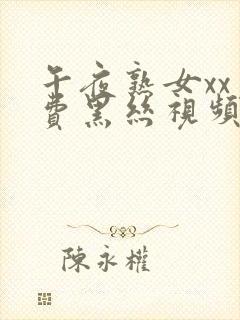 午夜熟女xx
費黑絲視頻
陳永權